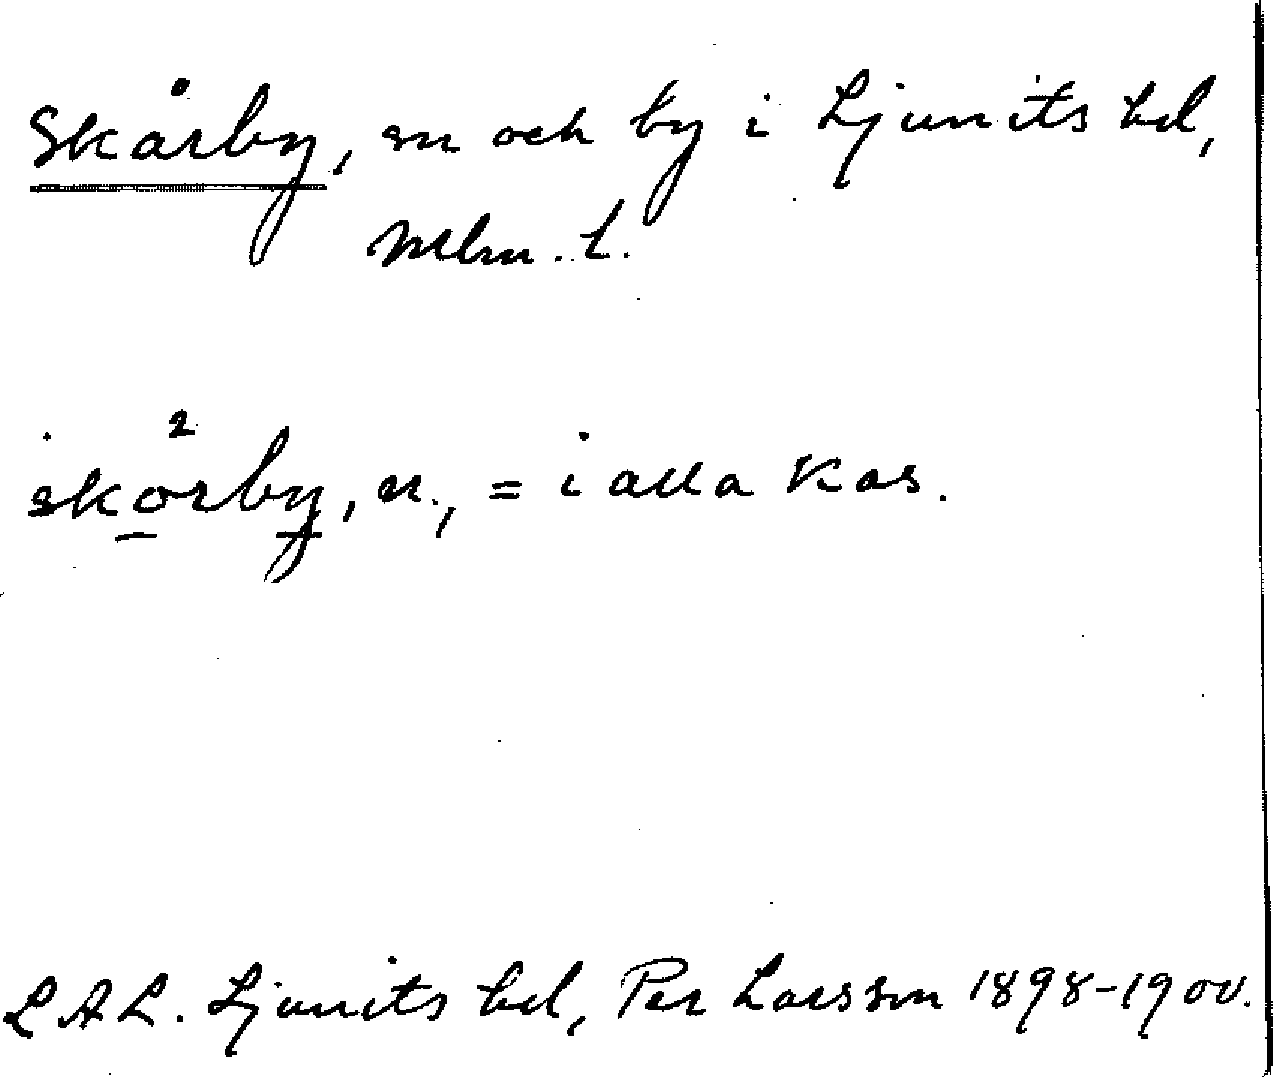 Skårby, sn och by i Ljunits hd,
Mlm. L.
sko²rby, n., = i alla kas.
LAL. Ljunits hd, Per Larsson 1898-1900.